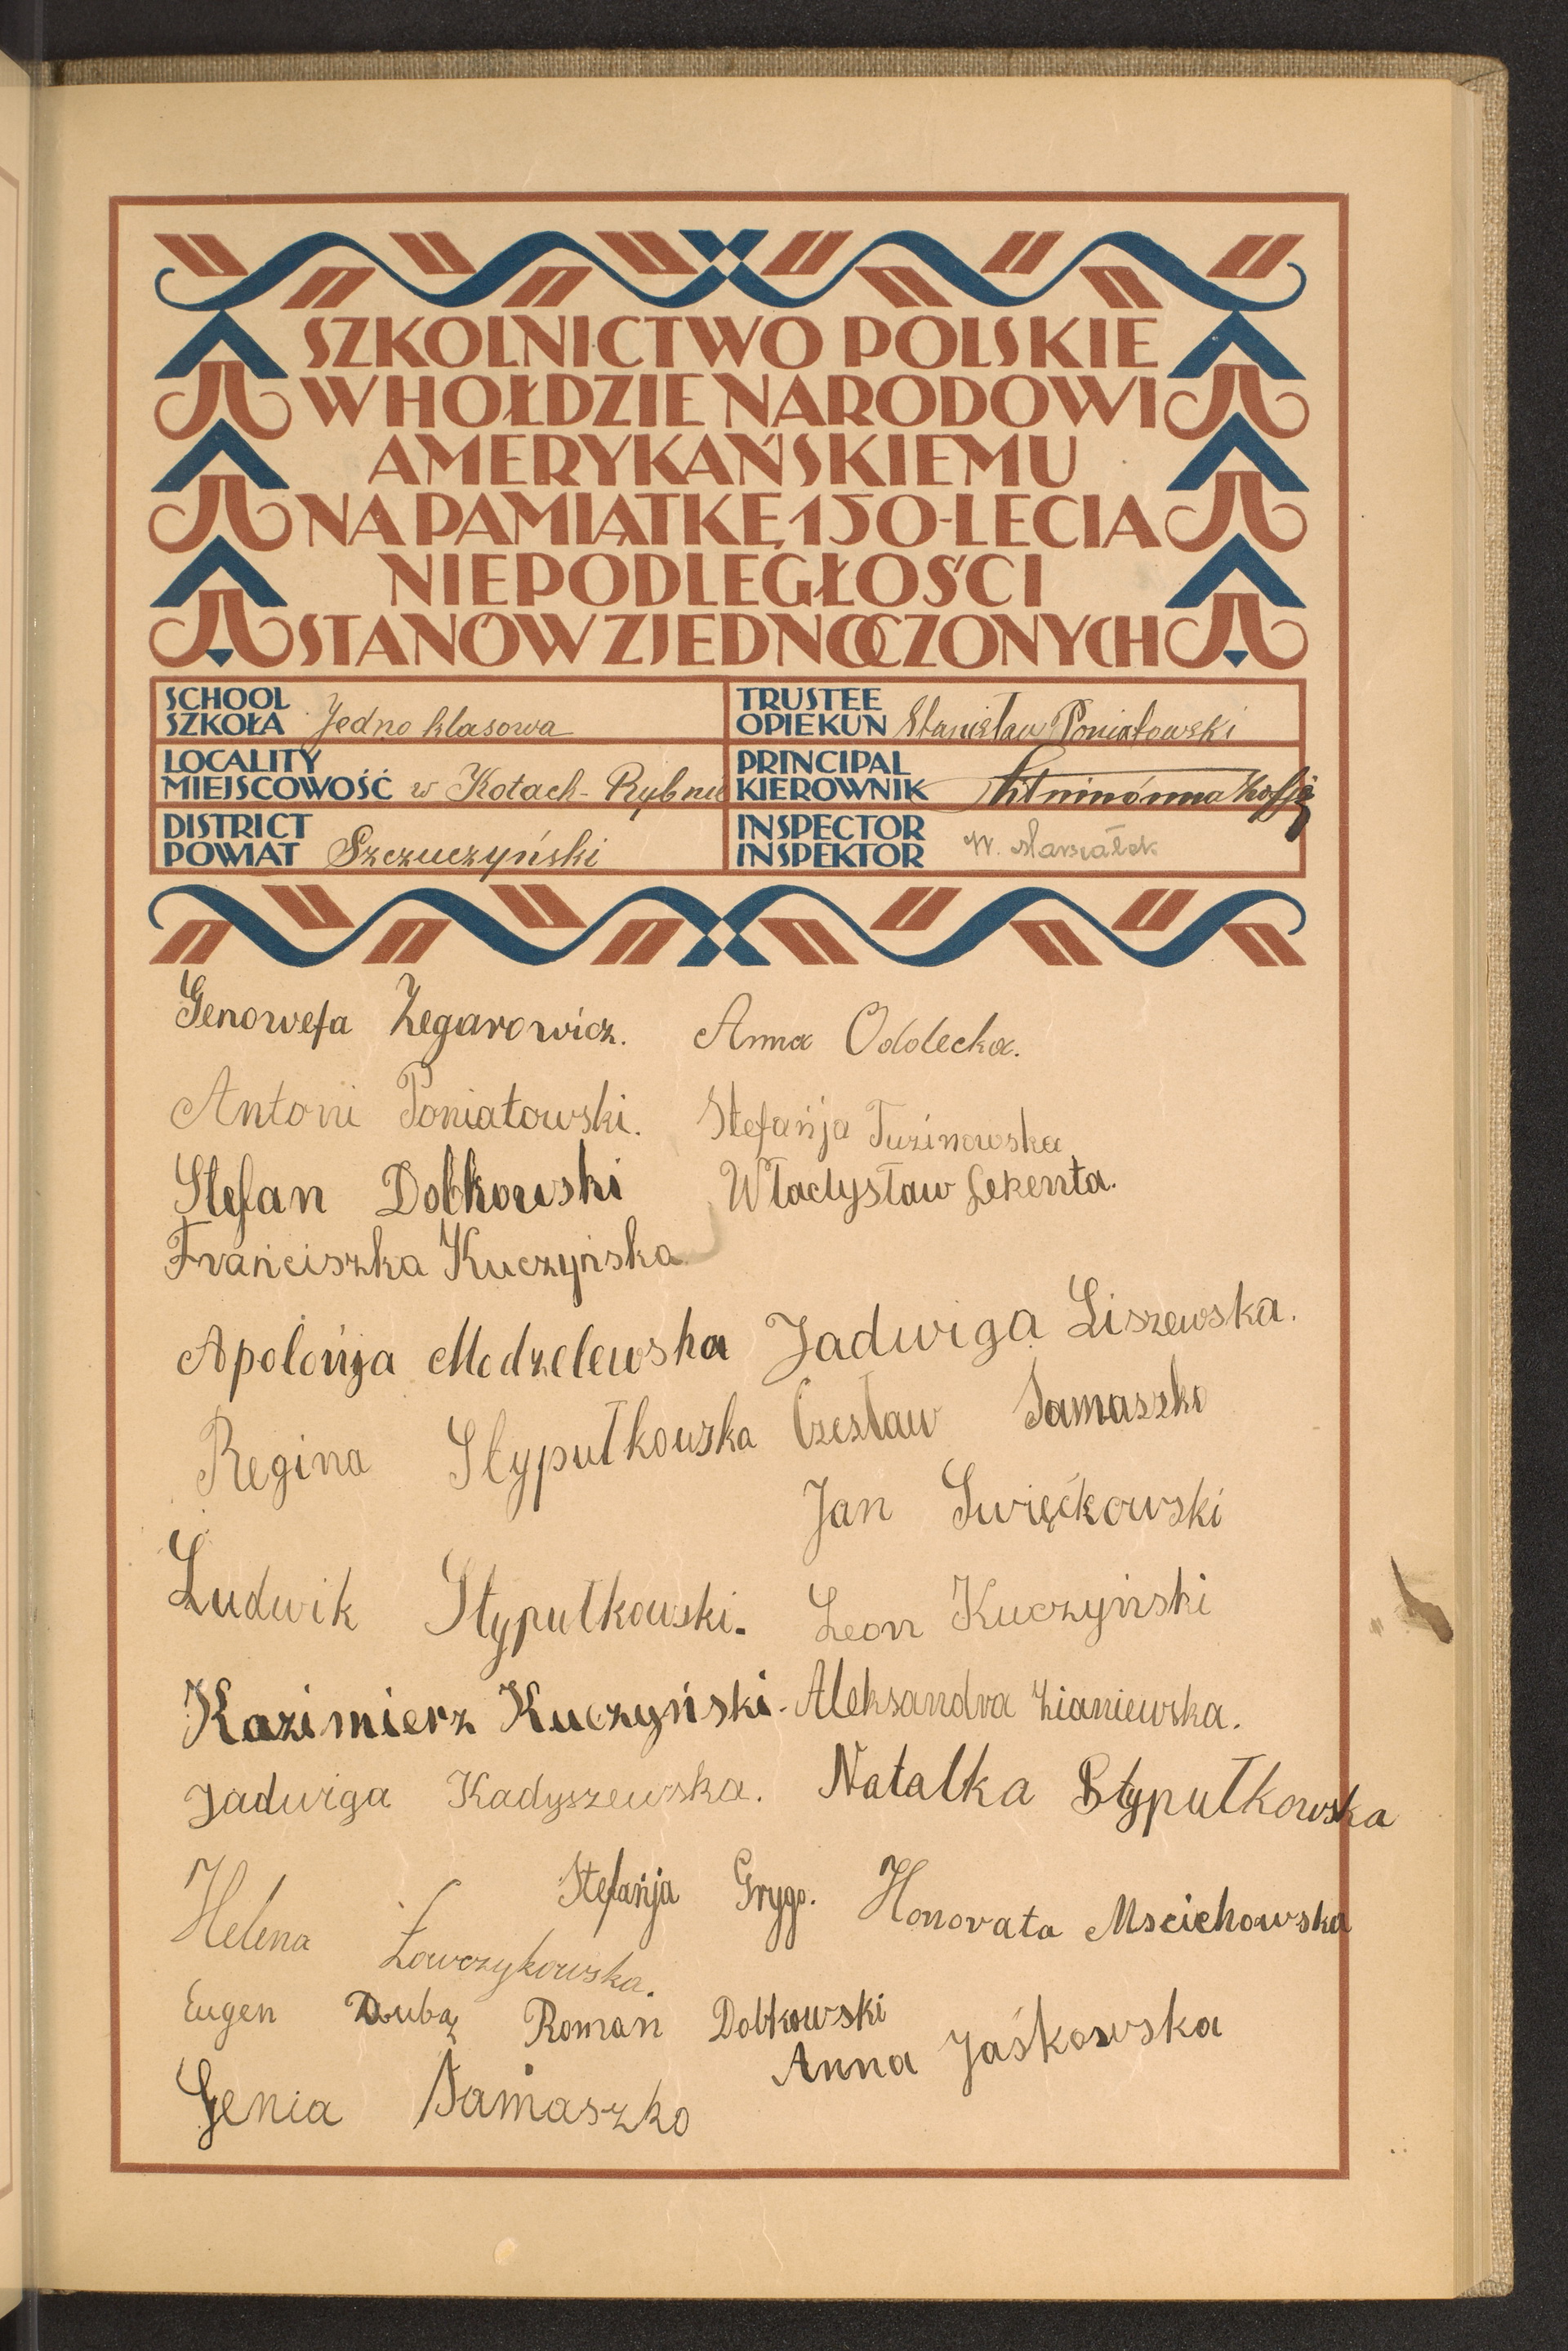 SZKOLNICTWO POLSKIE
W HOŁDZIE NARODOWI
AMERYKAŃSKIEMU
NA PAMIĄTKĘ 150-LECIA
NIEPODLEGŁOŚCI
STANÓW ZJEDNOCZONYCH
SCHOOL
SZKOŁA Jedno klasowa
TRUSTEE
OPIEKUN Stanisław Poniatowski
LOCALITY
MIEJSCOWOŚĆ w Kotach-Rybnie
PRINCIPAL
KIEROWNIK Zofja
DISTRICT
POWIAT Szczuczyński
INSPECTOR
INSPEKTOR W. Marszałek
Genowefa Zegarowicz. Anna Oddecka.
Antoni Poniatowski. Stefańja Tuzinowska
Stefan Dobkowski Władysław Lekenta.
Frańciszka Kuczyńska
Apolońja Modzelewska Jadwiga Liszewska.
Regina Stypułkowska Czesław Samaszko
Jan Swięćkowski
Ludwik Stypułkowski. Leon Kuczyński
Kazimierz Kuczyński. Aleksandra Zianiewska.
Jadwiga Kadyszewska. Natalka Stypułkowska
Helena Łowczykowska. Stefańja Gryga. Honorata Mscichowska
Eugen Roman Dobkowski
Anna Jaśkowska
Genia Samaszko